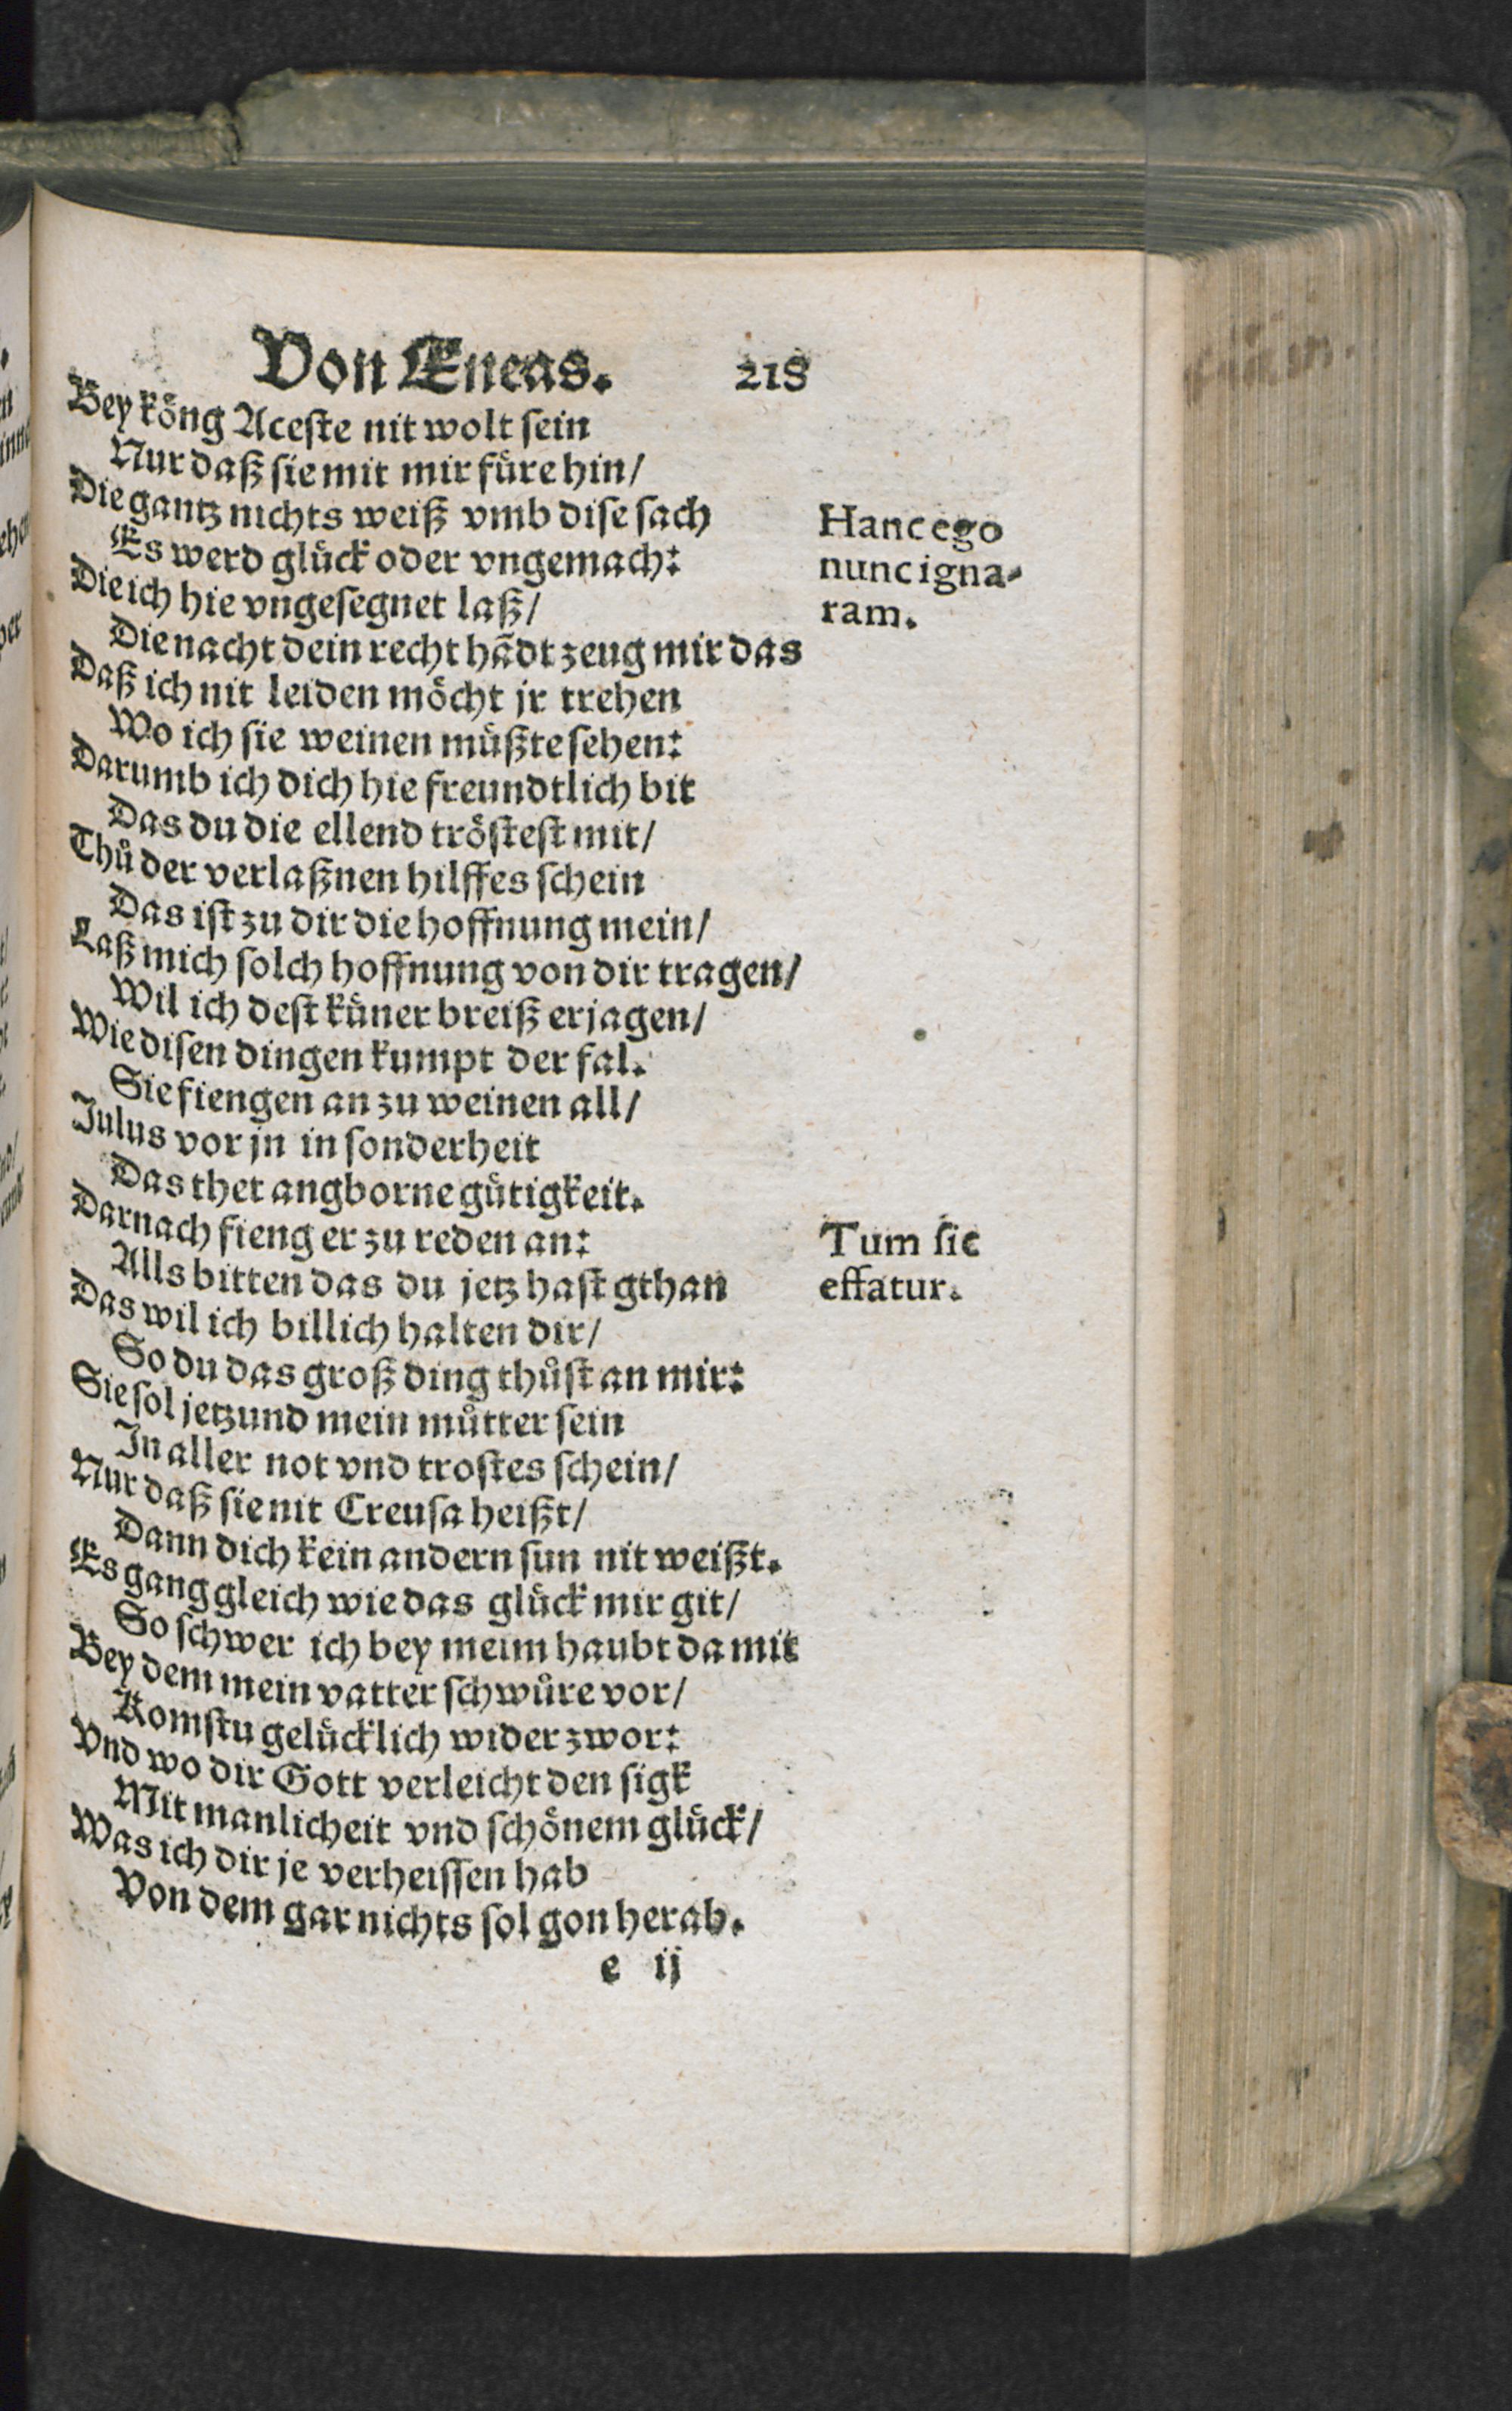 Von Eneas. 218
Bey kŏng Aceste nit wolt sein
Nur daß sie mit mir füre hin/
Die gantz nichts weiß vmb dise sach
Es werd glück oder vngemach:
Die ich hie vngesegnet laß/
Die nacht dein recht hãdt zeug mir das
Daß ich nit leiden möcht jr trehen
Wo ich sie weinen müßte sehen:
Darumb ich dich hie freundtlich bit
Das du die ellend tröstest mit/
Thů der verlaßnen hilffes schein
Das ist zu dir die hoffnung mein/
Laß mich solch hoffnung von dir tragen/
Wil ich dest küner breiß erjagen/
Wie disen dingen kumpt der fal.
Sie fiengen an zu weinen all/
Julus vor jn in sonderheit
Das thet angborne gütigkeit.
Darnach fieng er zu reden an:
Alls bitten das du jetz hast gthan
Das wil ich billich halten dir/
So du das groß ding thůst an mir:
Sie sol jetzund mein můtter sein
In aller not vnd trostes schein/
Nur daß sie nit Creusa heißt/
Dann dich kein andern sun nit weißt.
Es gang gleich wie das glück mir git/
So schwer ich bey meim haubt da mit
Bey dem mein vatter schwůre vor/
Komstu gelücklich wider zwor:
Vnd wo dir Gott verleicht den sigk
Mit manlicheit vnd schönem glück/
Was ich dir je verheissen hab
Von dem gar nichts sol gon herab.
e ij
Hanc ego
nunc igna-
ram.
Tum sic
effatur.